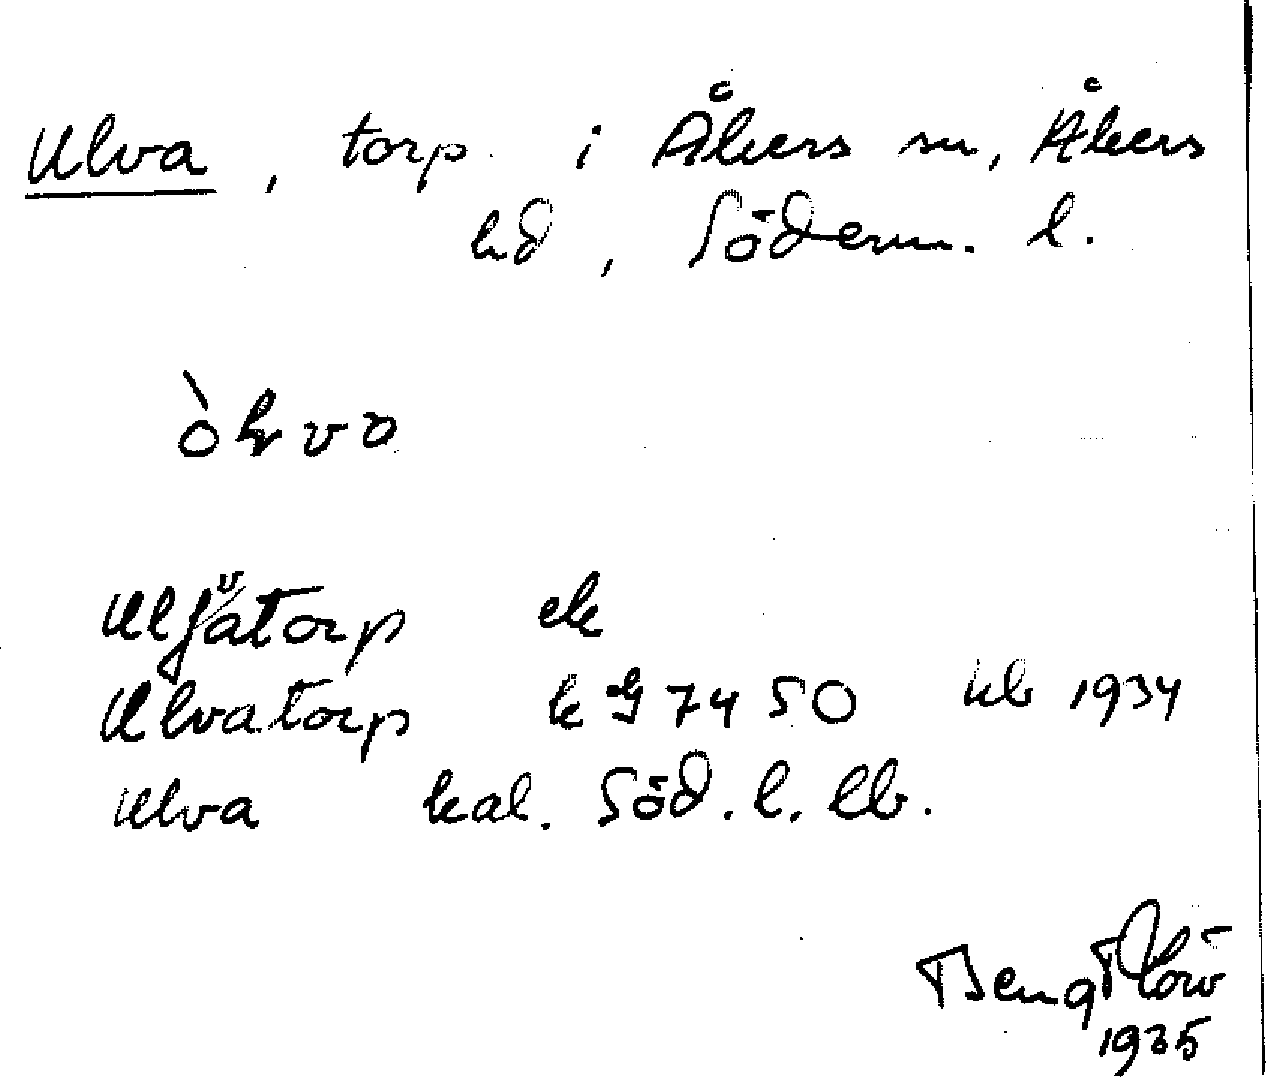 Ulva, torp i Åkers sn, Åkers
hd, Söderm. l.
Ulvåtorp ek
Ulvatorp k G 7450 hb 1934
Ulva kal. Söd. l. lb.
Bengt
1935